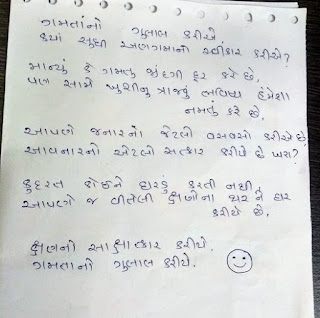 ગમતાંનો ગુલાલ કરીએ
ક્યાં સુધી અણગમાનો સ્વીકાર કરીએ?
માન્યું કે ગમતુ જીંદગી દુર કરે છે,
પણ સામે ખુશીનુ ત્રાજવું ભવિષ્ય હંમેશા
નમતું કરે છે.
આપણે જનારનો જેટલો વસવસો કરીએ છે,
આવનારનો એટલો સત્કાર કરીયે છે ખરા?
કુદરત કોઈને ધારદું કરતી નથી
આપણે જ વીતેલી ક્ષણોના ધારને ધાર
કરીયે છે.
ક્ષણનો સાક્ષાત્કાર કરીયે.
ગમતાનો ગુલાલ કરીયે.